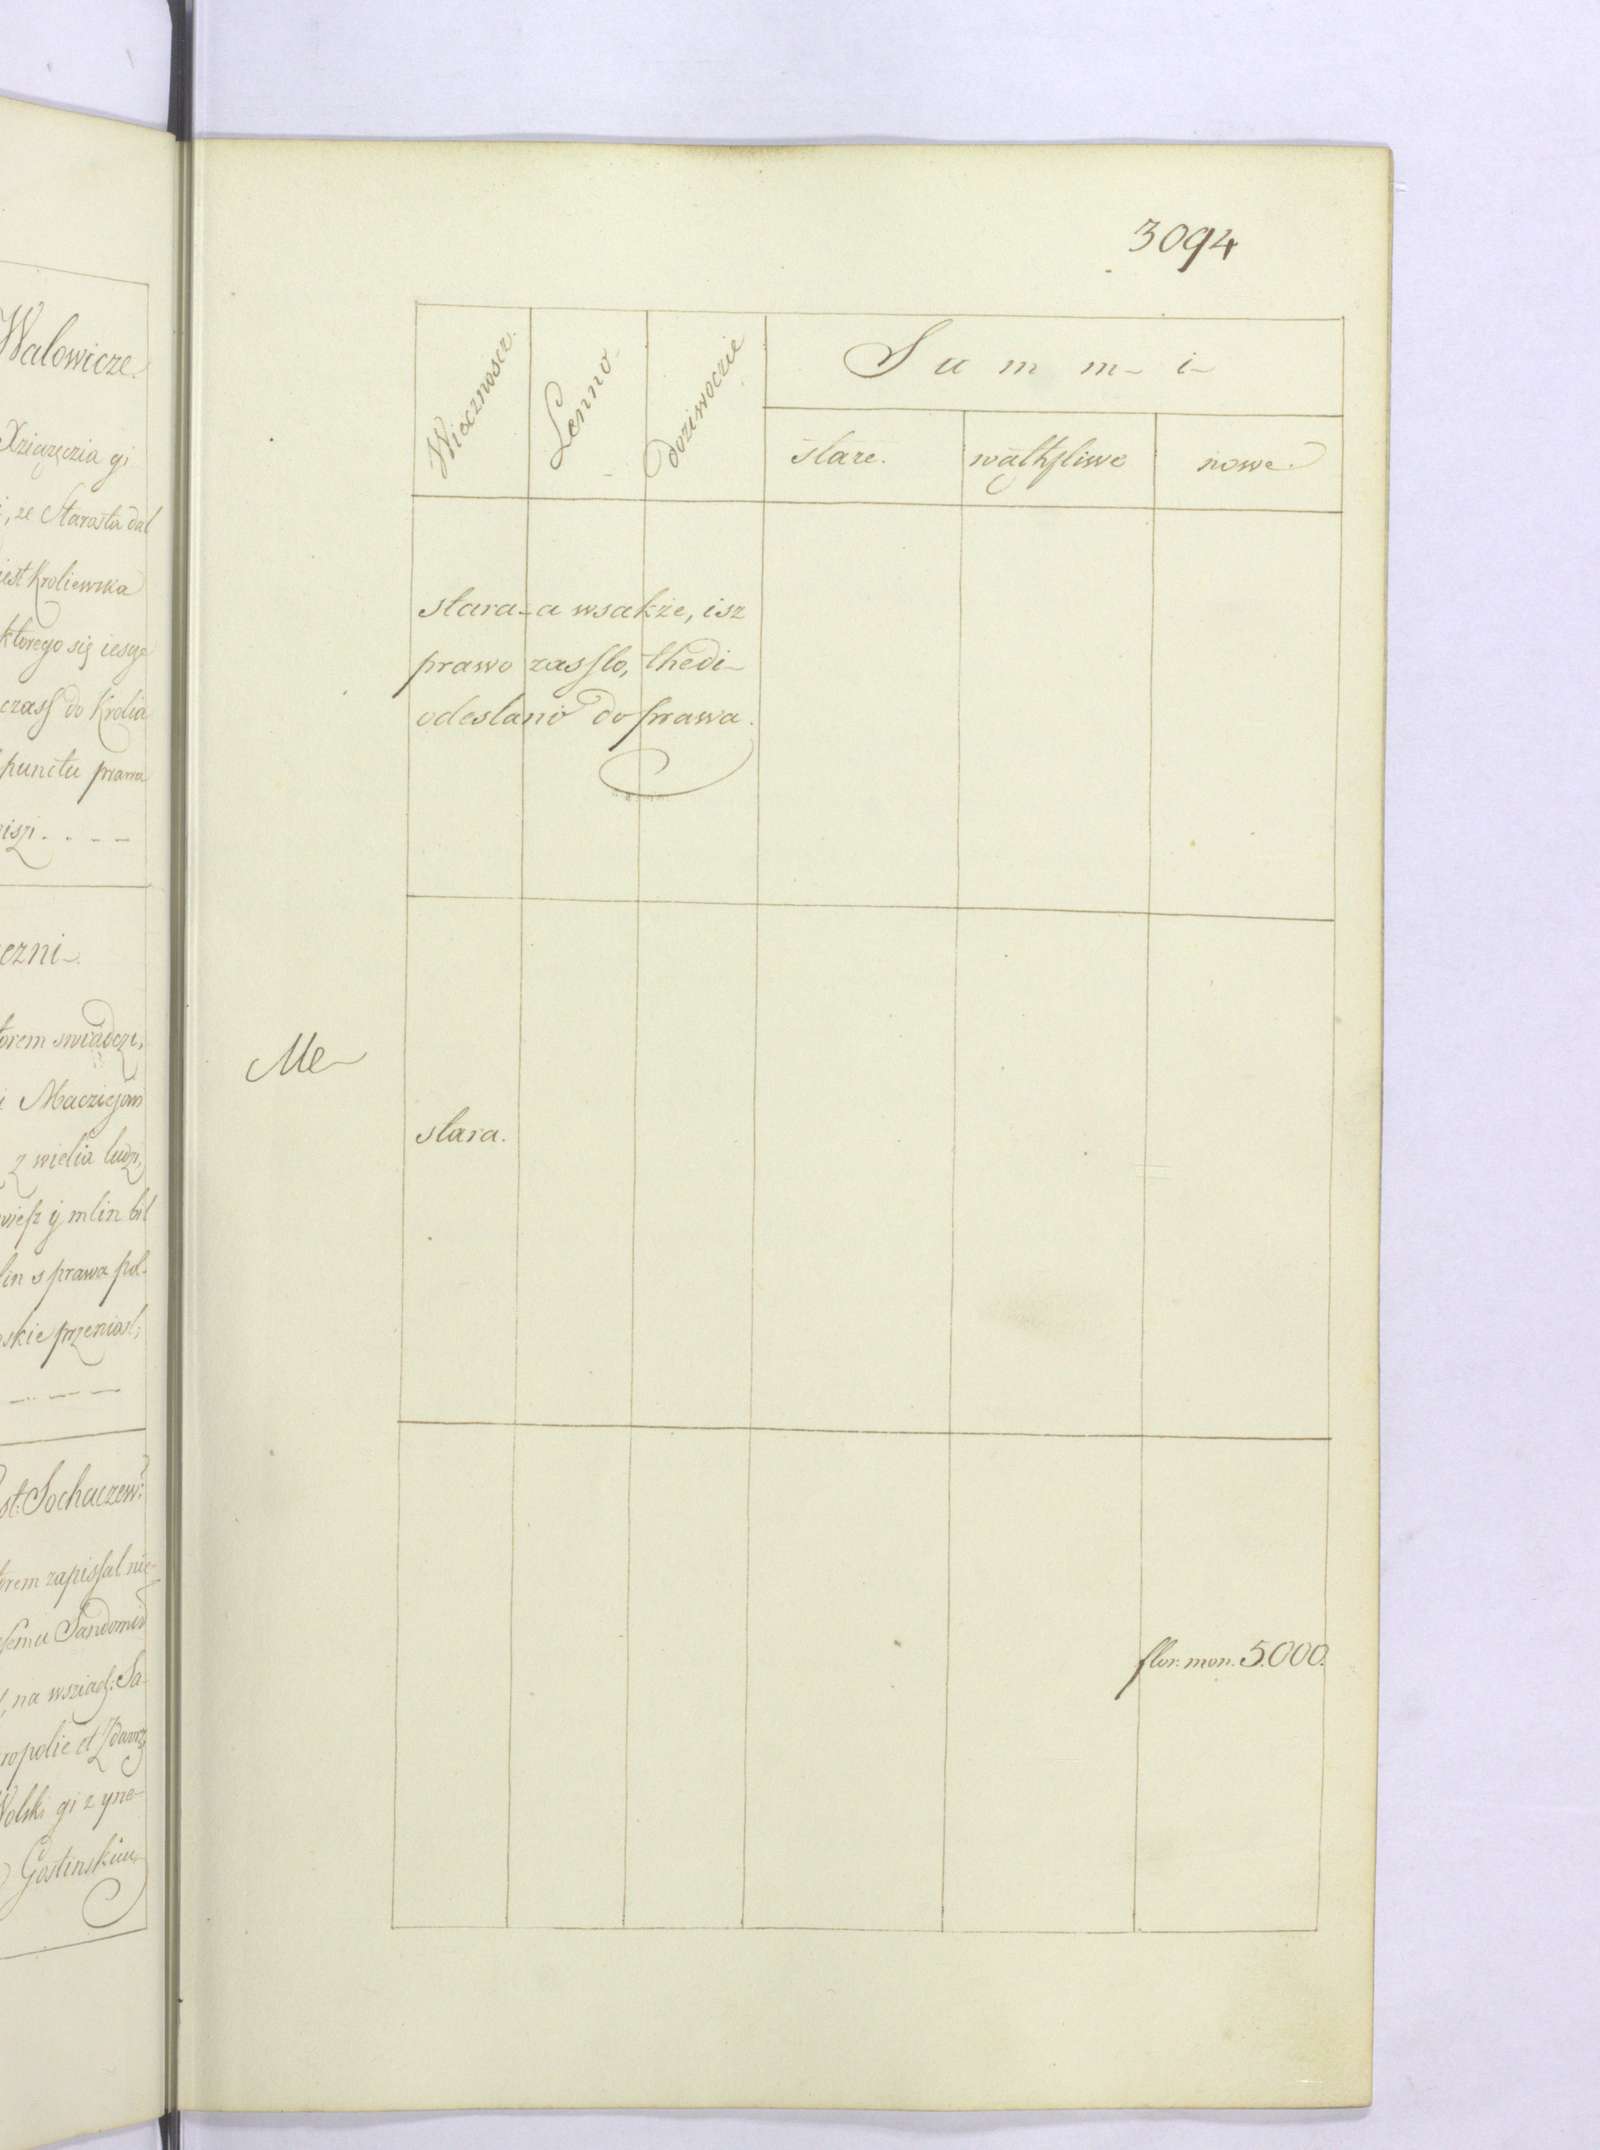 Walowicze.
Xziązęczia gi
, ze Starosta dal
iest Kroliewska
ktorego się iescze
czass do Krolia
punctu prawa
czni
torem swiadczi,
i Macziejow
z wielia ludzi,
wiesz ÿ mlin bil
lin s prawa pol-
skie przeniosl,
st: Sochaczew:
torem zapissal nie-
semu Sandomir
, na wsziach: Sa-
ropolie et Zdaarz
Wolski gi z yne-
Gostinskim
3094
Wiecznoscz.
Lenno
doziwoczie
Summi
stare.
wąthpliwe
nowe
stara a wsakże, isz
prawo zasslo, thedi
odeslano do prawa.
Me
stara.
flor: mon. 5.000.